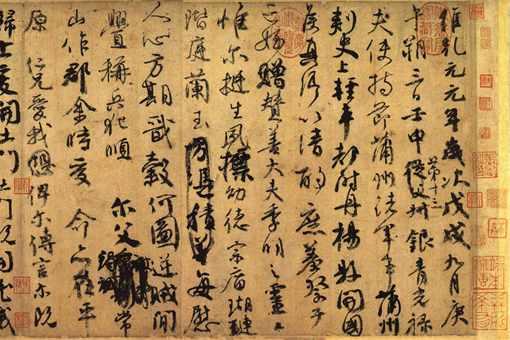 維乾元元年歲次戊戌九月庚
午朔三日壬申第十三從父叔銀青光祿
夫使持節蒲州諸軍事蒲州
刺史上輕車都尉丹楊縣開國
侯真卿以清酌庶羞祭于
亡姪贈贊善大夫季明之靈曰
惟爾挺生夙標幼德宗廟瑚璉
階庭蘭玉方憑積善每慰
人心方期戩穀何圖逆賊間
釁稱兵犯順爾父竭誠常
山作郡余時受命亦在平
原仁兄愛我俾爾傳言爾既
歸止爰開土門土門既開凶威